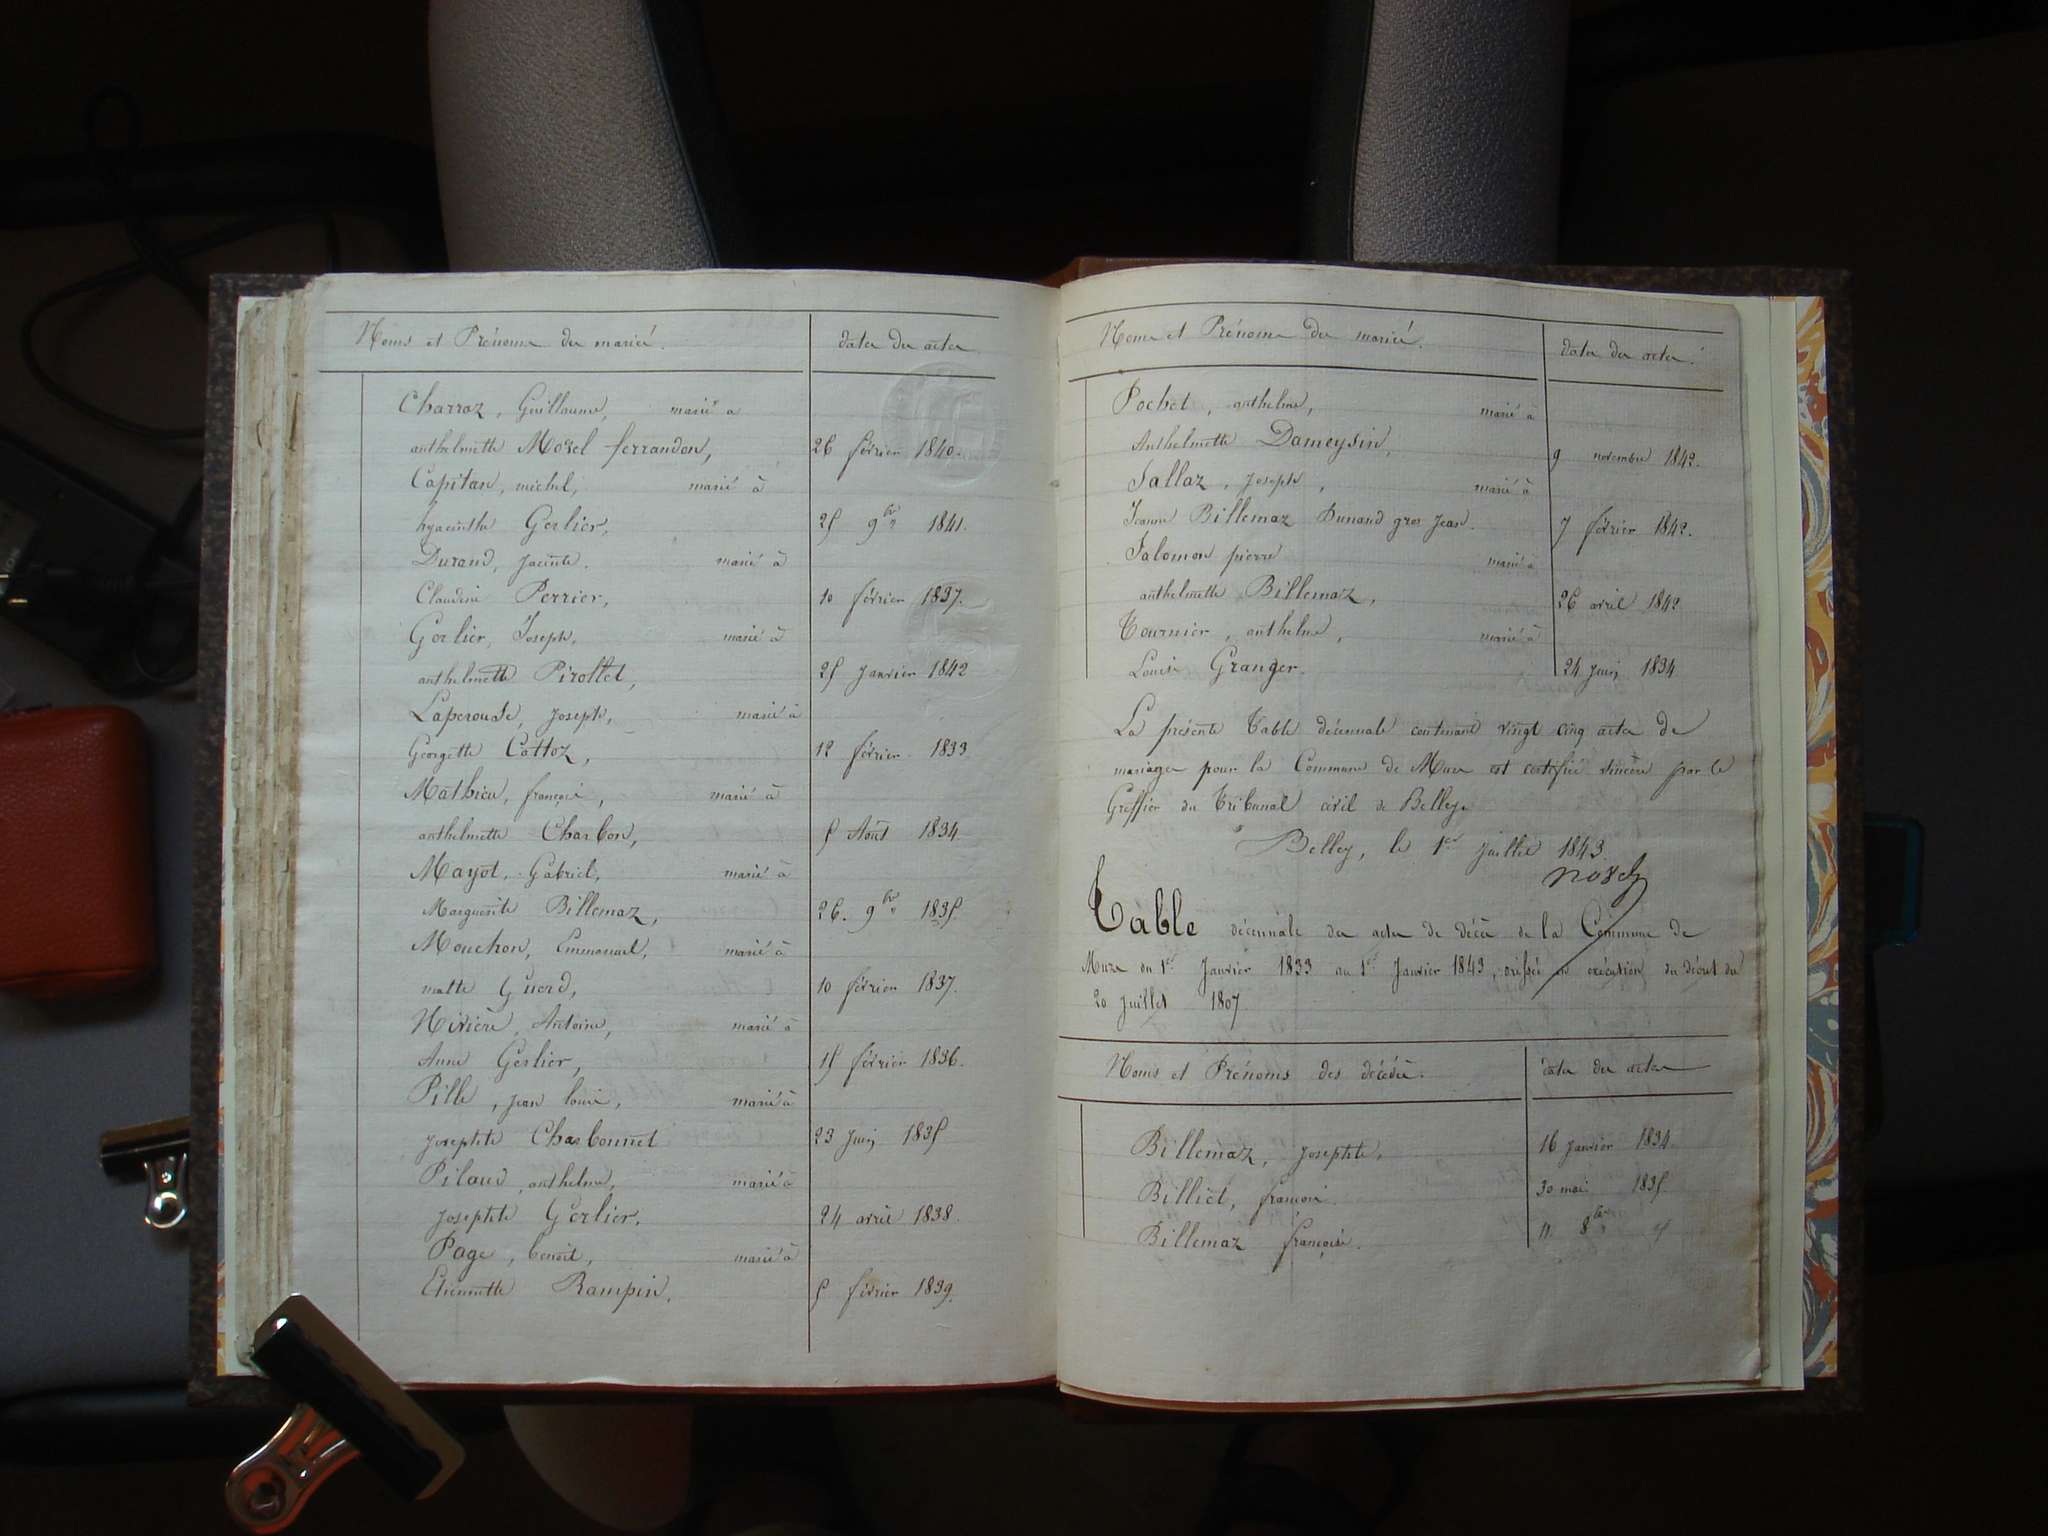 Noms et Prénoms des mariés. dates des actes
Charraz, Guillaume, marié a
anthelmette Morel ferrandon, 26 février 1840.
Capitan, michel, marié à
hyacinthe Gerlier, 25 9bre 1841.
Durand, Jacinte. marié à
Claudine Perrier, 10 février 1837.
Gerlier, Joseph, marié à
anthelmette Pirollet, 25 Janvier 1842
Laperouse, Joseph, marié à
Georgette Cottoz, 12 février 1833
Mathieu, françois, marié à
anthelmette Charbon, 5 Août 1834
Mayot, Gabriel, marié à
Marguerite Billemaz, 26. 9bre 1835
Mouchon, Emmanuel, marié à
10 février 1837.
Rivière, Antoine, marié à
Anne Gerlier, 15 février 1836.
Pille, jean louis, marié à
Josephte Charbonnet 23 Juin 1835
Pilaud, anthelme, marié à
Josephte Gerlier, 24 avril 1838.
Page, benoit, marié à
Etiennette Rampin, 5 février 1839.
Noms et Prénoms des mariés. dates des actes.
Pochet, anthelme, marié à
Anthelmette Dameysin, 9 novembre 1842.
Sallaz, Joseph, marié à
Jeanne Billemaz Dunand gros Jean. 7 février 1842.
Salomon pierre marié à
anthelmette Billemaz, 26 avril 1842
Tournier, anthelme, marié à
Louise Granger. 24 Juin 1834
La présente Table décennale contenant vingt cinq actes de
mariages pour la Commune de Mure est certifiée sincère par le
Greffier du Tribunal civil de Belley.
Belley, le 1er Juillet 1843.
Table décennale des actes de décès de la Commune de
Mure du 1er Janvier 1833 au 1er Janvier 1843, dressée en exécution du décret du
20 Juillet 1807
Noms et Prénoms des décédés. dates des actes
Billemaz, Josephte, 16 Janvier 1834.
Billiet, françois. 30 mai 1835.
Billemaz françoise. 11 8bre